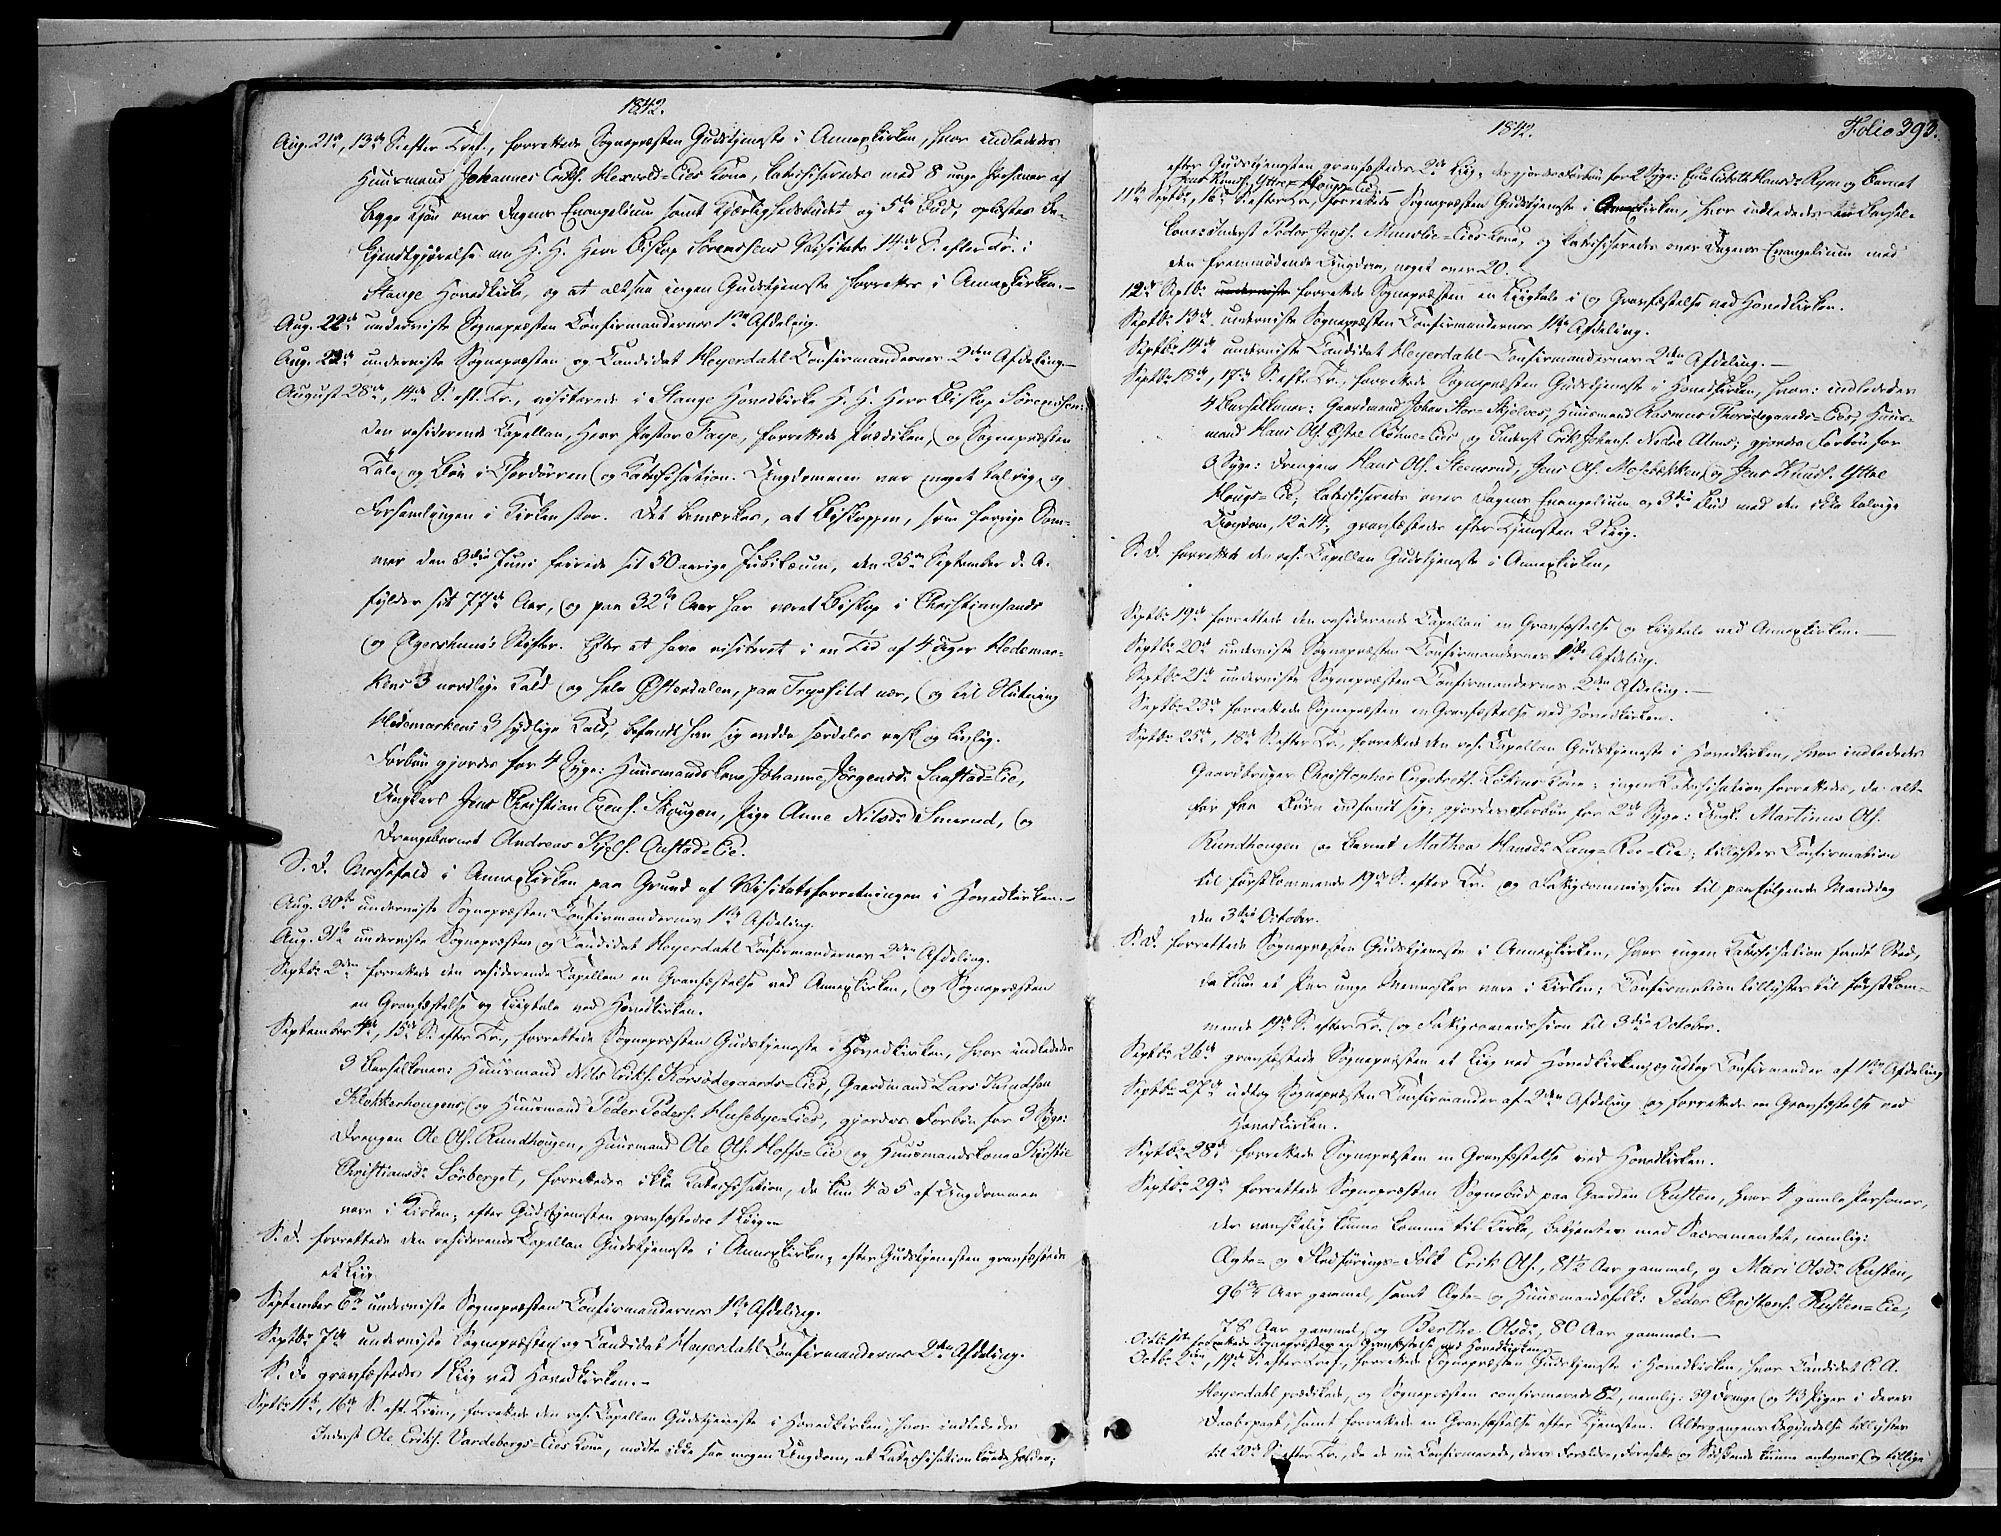 1842.
Aug. 21de, 13de S. efter Tref., forrettede Sognepræsten Gudstjeneste i Annexkirken, hvor indlededes
Huusmand Johannes Eriks. Hexvold-Eies Kone, katechiseredes med 8 unge Personer af
begge Kjøn over Dagens Evangelium samt Kjærlighedsbudet og 5te Bud, oplæstes Be-
kjendtgjørelse om H. H. Herr Biskop Sørenssens Visitats 14de S. efter Tr. i
Stange Hovedkirke, og at altsaa ingen Gudstjeneste forrettes i Annexkirken.-
Aug. 22de underviste Sognepræsten Confirmandernes 1ste Afdeling.
Aug. underviste Sognepræsten og Candidat Heyerdahl Confirmandernes 2den Afdeling.-
August 28de, 14de S. eft. Tr., visiterede i Stange Hovedkirke H. H. Herr Biskop Sørenssen:
den residerende Capellan, Herr Pastor Faye, forrettede Prædiken, og Sognepræsten
Tale og Bøn i Chordørren og Katechisation. Ungdommen var meget talrig og
Forsamlingen i Kirken stor. Det bemærkes, at Biskoppen, som forrige Som-
mer den 3die Juni feirede sit 50 aarige Jubilæum, den 25de September d. A.
fylder sit 77de Aar, og paa 32te Aar har været Biskop i Christiansands
og Agershuus Stifter. Efter at have visiteret i en Tid af 4 Uger Hedemar-
kens 3 nordlige Kald og hele Østerdalen, paa Trysild nær, og til Slutning
Hedemarkens 3 sydlige Kald, befandt han sig endda særdeles rask og livlig.
Forbøn gjordes for 4 Syge: Huusmandskone Johanne Jørgensd. Saastad-Eie,
Ungkarl Jens Christian Evens. Skougen, Pige Anne Nilsd. Smerud, og
Drengebarnet Andreas Kjels. Aastad-Eie.
S. D. Messefald i Annexkirken paa Grund af Visitatsforretningen i Hovedkirken.-
Aug. 30te underviste Sognepræsten Confirmandernes 1ste Afdeling.
Aug. 31te underviste Sognepræsten og Candidat Heyerdahl Confirmandernes 2den Afdeling.
Septbr. 2den forrettede den residerende Capellan en Gravfæstelse ved Annexkirken, og Sognepræsten
en Gravfæstelse og Liigtale ved Hovedkirken.
September 4de, 15de S. efter Tr., forrettede Sognepræsten Gudstjeneste i Hovedkirken, hvor indlededes
3 Barselkoner: Huusmand Nils Eriks. Korsødegaards-Eies, Gaardmand Lars Knudsen
Klokkerhougens, og Huusmand Peder Peders. Husebye-Eies, gjordes Forbøn for 3 Syge:
Drengen Ole Ols. Rundhougen, Huusmand Ole Ols. Hoffs-Eie og Huusmandskone Kirstie
Christiansd. Sørberget, forrettedes ikke Katechisation, da kun 4 a 5 af Ungdommen
vare i Kirken; efter Gudstjenesten gravfæstedes 1 Liig.
S. D. forrettede den residerende Capellan Gudstjeneste i Annexkirken; efter Gudstjenesten gravfæstedes
et Liig.
September 6te underviste Sognepræsten Confirmandernes 1ste Afdeling.
Septbr. 7de underviste Sognepræsten og Candidat Heyerdahl Confirmandernes 2den Afdeling.
S. D. gravfæstedes 1 Liig ved Hovedkirken.-
Septbr. 11te, 16de S. eft. Trin., forrettede den res. Capellan Gudstjeneste i Hovedkirken, hvor indlededes
Inderst Ole Eriks. Vardebergs-Eies Kone, mødte ikke saa megen Ungdom, at Katechisation kunde holdes;
1842. Folio 393.
efter Gudstjenesten gravfæstedes 2de Liig, Forbøn for 2 Syge: Hansd. Ryen og Barnet
Jens Knuds. Ytre-Hougs-Eie.
11te Septbr., 16de S. efter Tr., forrettede Sognepræsten Gudstjeneste i Annexkirken, hvor indlededes Barsel-
kone: Inderst Peder Jens. Eies Kone, og katechiseredes over Dagens Evangelium med
den fremmødende Ungdom, noget over 20.
12te Septbr. forrettede Sognepræsten en Liigtale i og Gravfæstelse ved Hovedkirken.
Septbr. 13de underviste Sognepræsten Confirmandernes 1ste Afdeling.
Septbr. 14de underviste Candidat Heyerdahl Confirmandernes 2den Afdeling.-
Septbr. 18de, 17de S. eft. Tr., forrettede Sognepræsten Gudstjeneste i Hovedkirken, hvor indlededes
4 Barselkoner: Gaardmand Johan Stor-Skjelves, Huusmand Rasmus Thorødegaards-Eies, Huus-
mand Hans Ols. Østre Røhne-Eies og Inderst Erik Johans. Nedre Alms; gjordes Forbøn for
3 Syge: Drengene Hans Ols. Steensrud, Jens Ols. Molebækken og Jens Knuds. Ytre
Hougs-Eie; katechiseredes over Dagens Evangelium og 3die Bud med den ikke talrige
Ungdom, 12 a 14; gravfæstedes efter Tjenesten 2 Liig.
S. D. forrettede den res. Capellan Gudstjeneste i Annexkirken,
Septbr. 19de forrettede den residerende Capellan en Gravfæstelse og Liigtale ved Annexkirken.-
Septbr. 20de underviste Sognepræsten Confirmandernes 1ste Afdeling.
Septbr. 21de underviste Sognepræsten Confirmandernes 2den Afdeling.-
Septbr. 23de forrettede Sognepræsten en Gravfæstelse ved Hovedkirken.
Septbr. 25de, 18de S. efter Tr., forrettede den res. Capellan Gudstjeneste i Hovedkirken, hvor indlededes
Gaardbruger Christopher Engebrets. Løkens Kone; ingen Katechisation forrettedes, da alt-
for faa Børn indfandt sig; gjordes Forbøn for 2de Syge: Ungk. Martinus Ols.
Rundhougen og Barnet Mathea Hansd. Lang-Ree-Eie; tillystes Confirmation
til førstkommende 19de S. efter Tr. og Fattigcommission til paafølgende Mandag
den 3die October.
S. D. forrettede Sognepræsten Gudstjeneste i Annexkirken, hvor ingen Katechisation fandt Sted,
da kun et Par unge Mennesker vare i Kirken; Confirmation tillystes til førstkom-
mende 19de S. efter Tr. og Fattigcommission til 3die October.
Septbr. 26de gravfæstede Sognepræsten et Liig ved Hovedkirken, og udtog Confirmander af 1ste Afdeling
Septbr. 27de udtog Sognepræsten Confirmander af 2den Afdeling og forrettede en Gravfæstelse ved
Hovedkirken.
Septbr. 28de forrettede Sognepræsten en Gravfæstelse ved Hovedkirken.
Septbr. 29de forrettede Sognepræsten Sognebud paa Gaarden Rusten, hvor 4 gamle Personer,
der vanskelig kunne komme til Kirke, betjentes med Sacramentet, nemlig:
Ægte- og Flodførings-Folk Erik Ols., 81½ Aar gammel, og Mari Olsd. Rusten,
96¾ Aar gammel, samt Ægte- og Huusmandsfolk: Peder Christens. Rusten-Eie,
78 Aar gammel, og Berthe Olsd., 80 Aar gammel.-
Octbr. 1ste forrettede Sognepræsten en Gravfæstelse ved Hovedkirken.
Octbr. 2den, 19de S. efter Tref., forrettede Sognepræsten Gudstjeneste i Hovedkirken, hvor Candidat C. A.
Heyerdahl prædikede, og Sognepræsten confirmerede 82, nemlig: 39 Drenge og 43 Piger i deres
Daabspagt, samt forrettede en Gravfæstelse efter Tjenesten. Altergangens Begyndelse tillystes
til 20de S. efter Tr., da de nu Confirmerede, deres Forældre, Foresatte og Sødskende kunne antegnes, og tillige